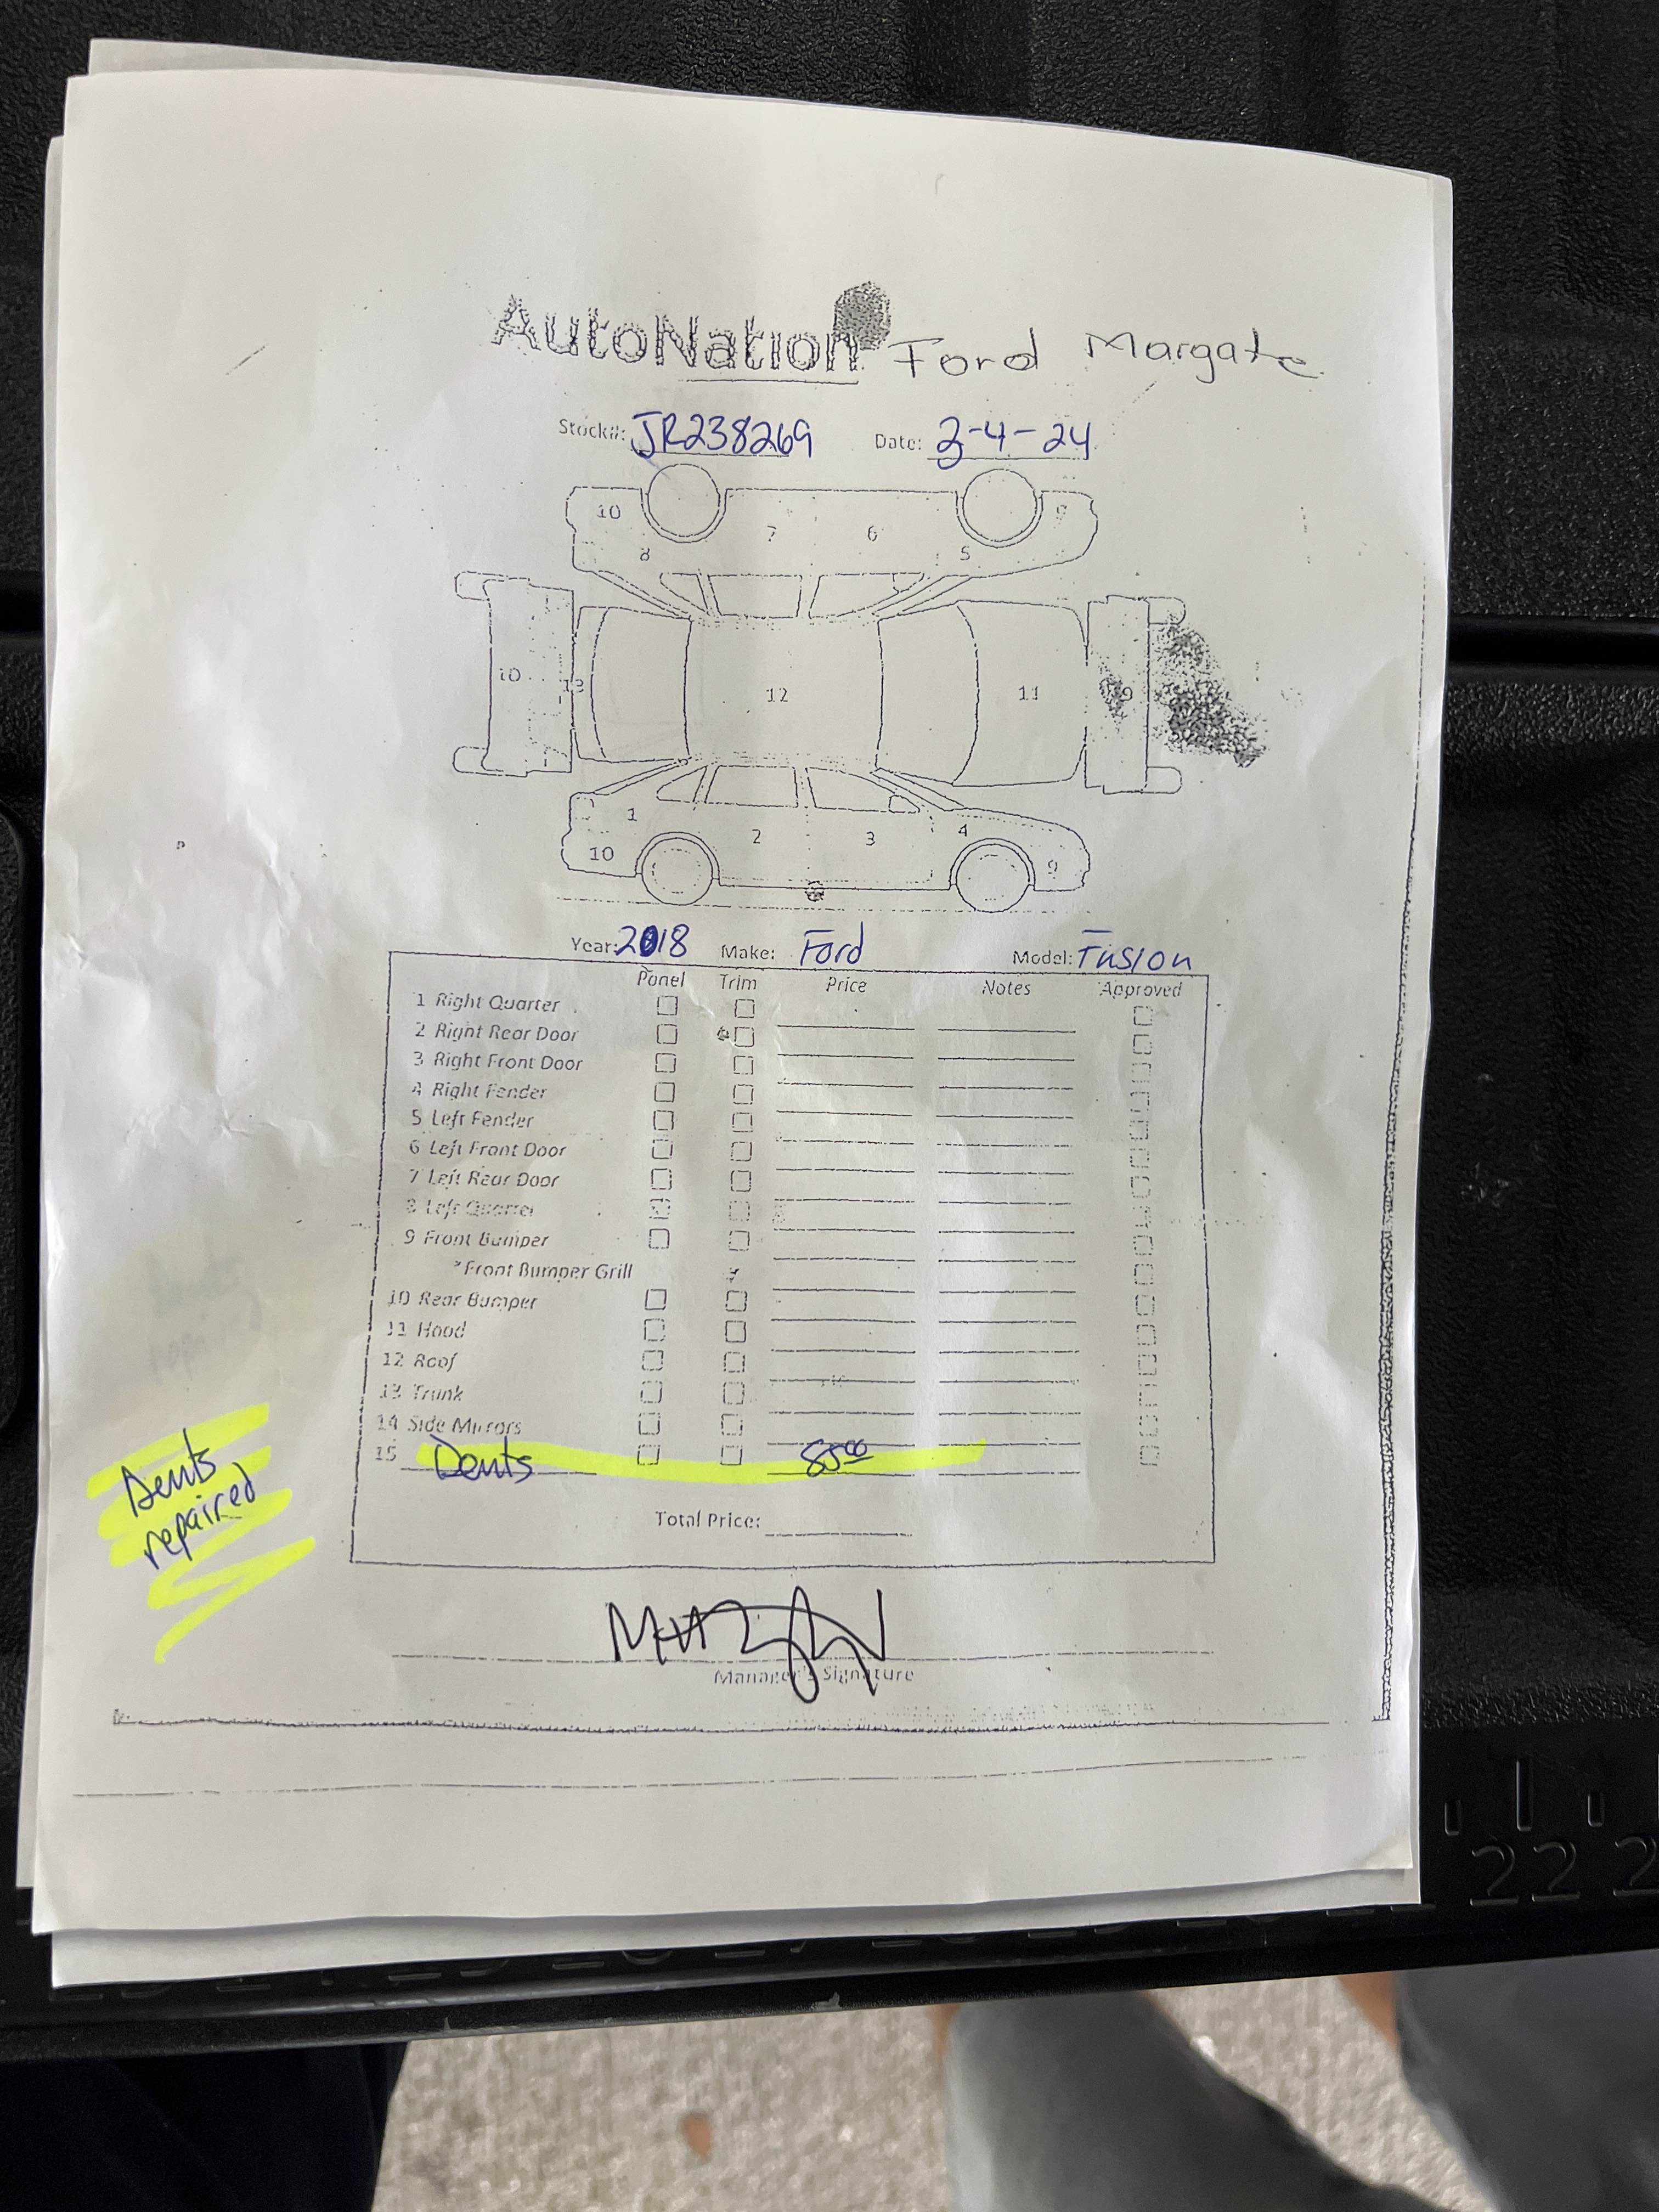 AutoNation Ford Margate
Stock#: JR238269 Date: 3-4-24
10 7 6 9
8 5
10 13 12 11 9
1 2 3 4
10 9
Year: 2018 Make: Ford Model: Fusion
Panel Trim Price Notes Approved
1 Right Quarter
2 Right Rear Door
3 Right Front Door
4 Right Fender
5 Left Fender
6 Left Front Door
7 Left Rear Door
8 Left Quarter
9 Front Bumper
*Front Bumper Grill
10 Rear Bumper
11 Hood
12 Roof
13 Trunk
14 Side Mirrors
15 Dents 8500
Dents
repaired
Total Price:
Manager's Signature
22